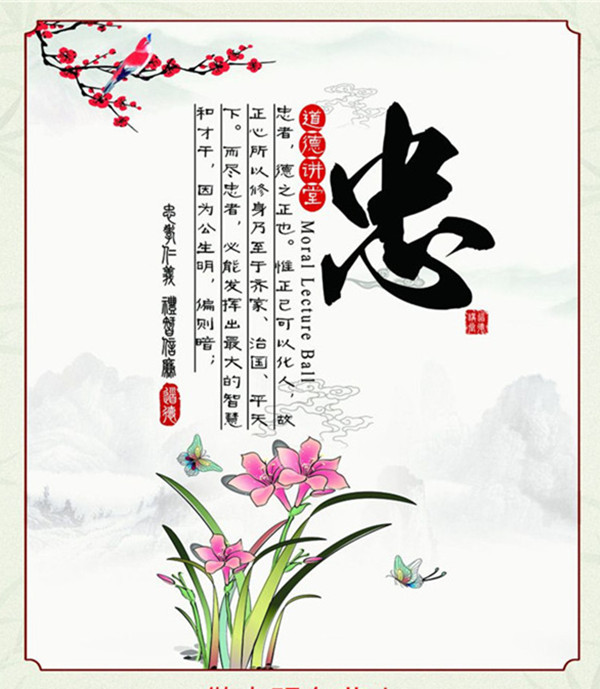 忠
道德讲堂
Moral Lecture Ball
忠者，德之正也。惟正己可以化人，故
正心所以修身乃至于齐家、治国、平天
下。而尽忠者，必能发挥出最大的智慧
和才干，因为公生明，偏则暗；
忠孝仁義 禮智信廉
道德
道德
講堂